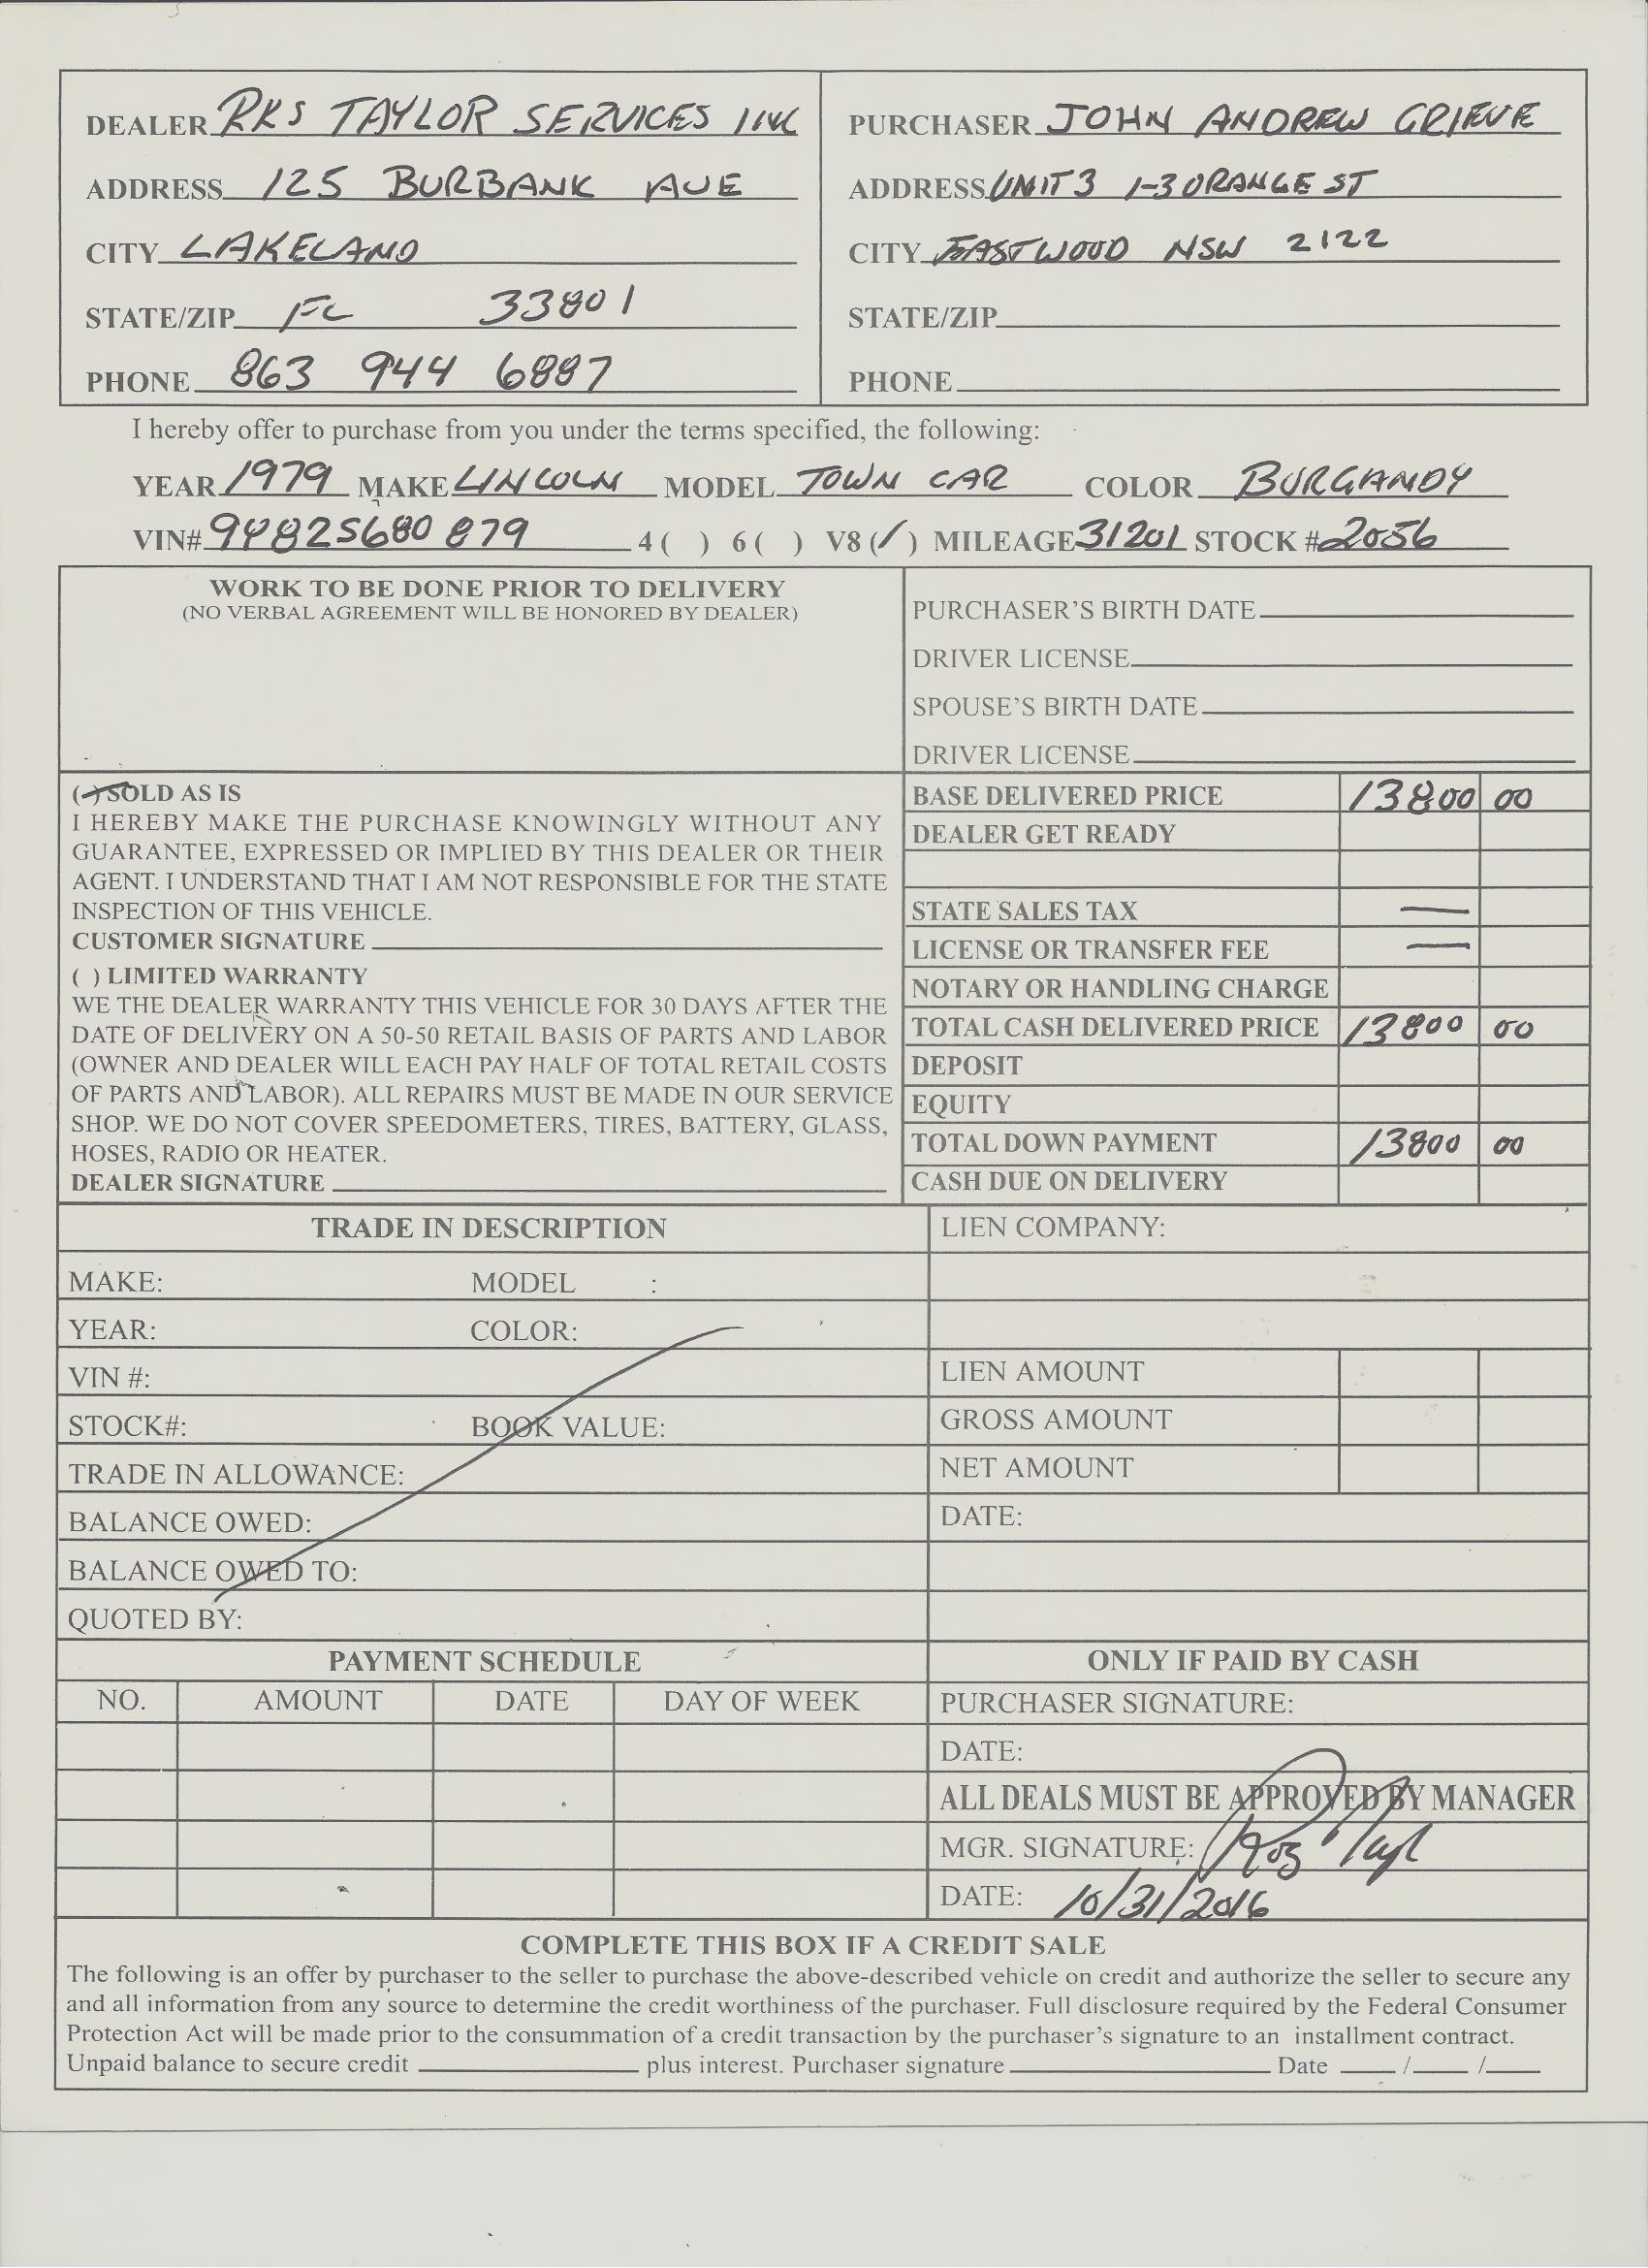 DEALER RKS TAYLOR SERVICES INC
ADDRESS 125 BURBANK AVE
CITY LAKELAND
STATE/ZIP FL 33801
PHONE 863 944 6887
PURCHASER JOHN ANDREW GRIEVE
ADDRESS UNIT 3 1-3 ORANGE ST
CITY EASTWOOD NSW 2122
STATE/ZIP
PHONE
I hereby offer to purchase from you under the terms specified, the following:
YEAR 1979 MAKE LINCOLN MODEL TOWN CAR COLOR BURGANDY
VIN# 9Y82S680879 4 ( ) 6 ( ) V8 (/) MILEAGE 31201 STOCK # 2056
WORK TO BE DONE PRIOR TO DELIVERY
(NO VERBAL AGREEMENT WILL BE HONORED BY DEALER)
PURCHASER'S BIRTH DATE
DRIVER LICENSE
SPOUSE'S BIRTH DATE
DRIVER LICENSE
( ) SOLD AS IS
I HEREBY MAKE THE PURCHASE KNOWINGLY WITHOUT ANY
GUARANTEE, EXPRESSED OR IMPLIED BY THIS DEALER OR THEIR
AGENT. I UNDERSTAND THAT I AM NOT RESPONSIBLE FOR THE STATE
INSPECTION OF THIS VEHICLE.
CUSTOMER SIGNATURE
( ) LIMITED WARRANTY
WE THE DEALER WARRANTY THIS VEHICLE FOR 30 DAYS AFTER THE
DATE OF DELIVERY ON A 50-50 RETAIL BASIS OF PARTS AND LABOR
(OWNER AND DEALER WILL EACH PAY HALF OF TOTAL RETAIL COSTS
OF PARTS AND LABOR). ALL REPAIRS MUST BE MADE IN OUR SERVICE
SHOP. WE DO NOT COVER SPEEDOMETERS, TIRES, BATTERY, GLASS,
HOSES, RADIO OR HEATER.
DEALER SIGNATURE
BASE DELIVERED PRICE 13800 00
DEALER GET READY
STATE SALES TAX —
LICENSE OR TRANSFER FEE —
NOTARY OR HANDLING CHARGE
TOTAL CASH DELIVERED PRICE 13800 00
DEPOSIT
EQUITY
TOTAL DOWN PAYMENT 13800 00
CASH DUE ON DELIVERY
TRADE IN DESCRIPTION
MAKE: MODEL :
YEAR: COLOR:
VIN #:
STOCK#: BOOK VALUE:
TRADE IN ALLOWANCE:
BALANCE OWED:
BALANCE OWED TO:
QUOTED BY:
LIEN COMPANY:
LIEN AMOUNT
GROSS AMOUNT
NET AMOUNT
DATE:
PAYMENT SCHEDULE
NO. AMOUNT DATE DAY OF WEEK
ONLY IF PAID BY CASH
PURCHASER SIGNATURE:
DATE:
ALL DEALS MUST BE APPROVED BY MANAGER
MGR. SIGNATURE:
DATE: 10/31/2016
COMPLETE THIS BOX IF A CREDIT SALE
The following is an offer by purchaser to the seller to purchase the above-described vehicle on credit and authorize the seller to secure any
and all information from any source to determine the credit worthiness of the purchaser. Full disclosure required by the Federal Consumer
Protection Act will be made prior to the consummation of a credit transaction by the purchaser's signature to an installment contract.
Unpaid balance to secure credit plus interest. Purchaser signature Date / /